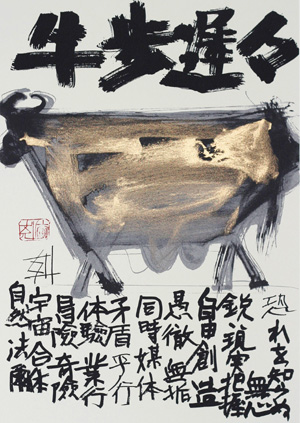 牛歩遅々
恐れを知らぬ
無心
鋭い現実把握
自由創造
愚徹無垢
同時媒体
矛盾平行
体験業行
冒険奇険
宇宙合体
自然法爾